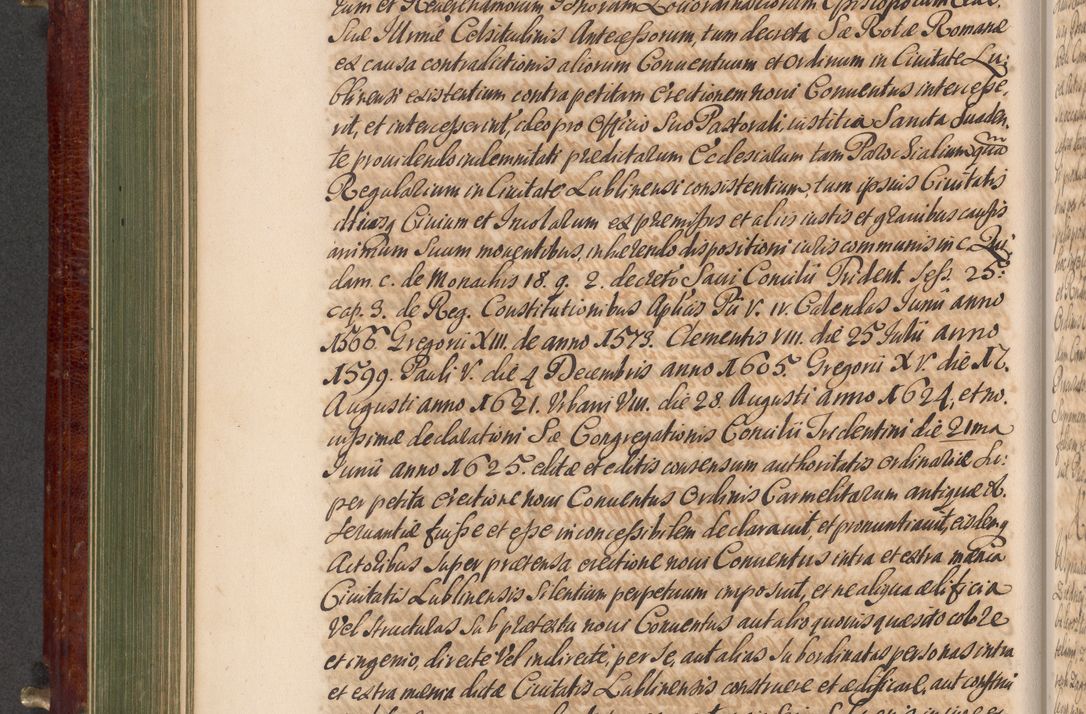 tum et Reverendissimorum Locoordinariorum Episcoporum
Suæ Illrmæ Celsitudinis Antecessorum, tum decreta Sæ Rotæ Romanæ
ex causa contradictionis aliorum Conventuum et Ordinum in Civitate Lu:
blinensi existentium contra petitam erectionem novi Conventus intercesse,
rit, et intercesserint, ideo pro Officio Suo Pastorali, iustitia Sancta Suaden,
te providendo indemnitati predictarum Ecclesiarum tam Parochialium quam
Regularium in Civitate Lublinensi consistentium, tum ipsius Civitatis
illiusq Civium et Incolarum ex præmissis et aliis iustis et gravibus causis
animum Suum moventibus, inhærendo dispositioni iuris communis in c. Qui
dam. c. de Monachis 18. q. 2. decreto Sacri Concilii Trident. Sess. 25.
cap. 3. de Reg. Constitutionibus Aplicis Pii V. IV. Calendas Junii anno
1566 Gregorii XIII. de anno 1573. Clementis VIII. die 25 Julii anno
1599. Pauli V. die 4 Decembris anno 1605 Gregorii XV. die 17.
Augusti anno 1621. Urbani VIII. die 28 Augusti anno 1624, et no.
vissimæ declarationi Sæ Congregationis Concilii Tridentini die 21ma
Junii anno 1625. editæ et editis consensum authoritatis ordinariæ Su:
per petita erectione novi Conventus Ordinis Carmelitarum antiquæ Ob.
servantiæ fuisse et esse inconcessibilem declaravit, et pronuntiavit, eisdemq
Actoribus super prætensa erectione novi Conventus intra et extra mænia
Civitatis Lublinensis Silentium perpetuum imposuit, et ne aliqua ædificia
Vel Structuras Sub prætextu novi Conventus aut alio quovis quæsito colore
et ingenio, directe Vel indirecte, per Se, aut alias Subordinatas personas intra
et extra mænia dictæ Civitatis Lublinensis construere et ædificare, aut construi